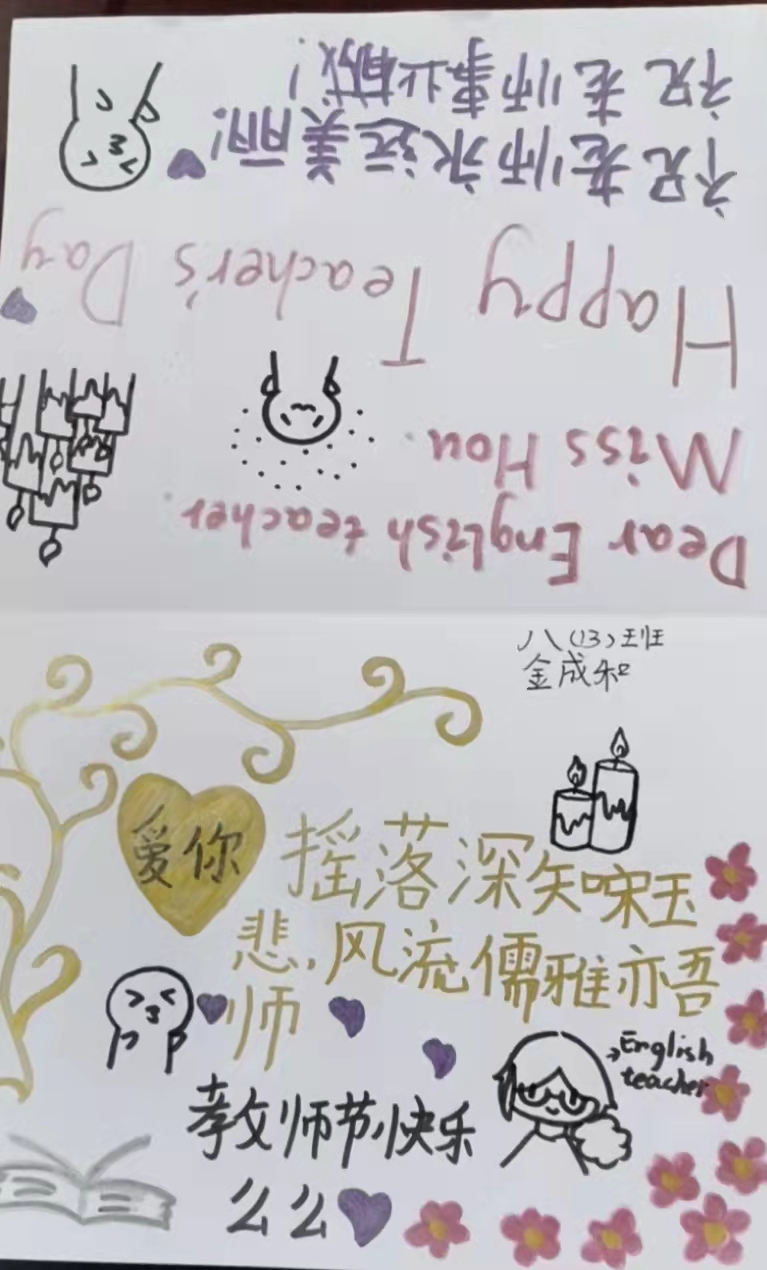 Dear English teacher
Miss Hou
Happy Teacher's Day
祝老师永远美丽!
祝老师事业有成!
八(13)班
金成和
爱你
摇落深知宋玉
悲,风流儒雅亦吾
师
English
teacher
教师节快乐
么么